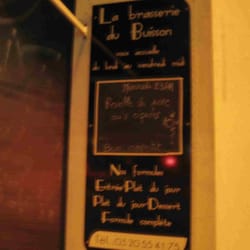 La brasserie
du Buisson
vous accueille
du lundi au vendredi midi
de porc
Bon appétit
Nos formules
Entrée/Plat du jour
Plat du jour/Dessert
Formule complète
Tél. 03 20 55 41 75